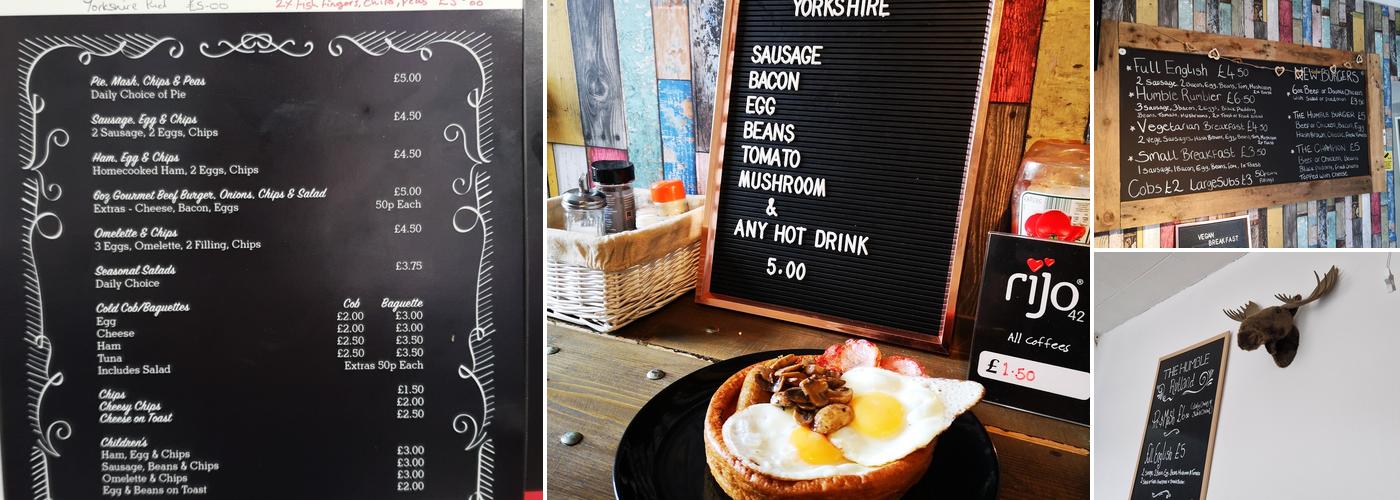 Yorkshire Pud £5-00
2x Fish fingers, Chips, Peas £3-00
Pie, Mash, Chips & Peas £5.00
Daily Choice of Pie
Sausage, Egg & Chips £4.50
2 Sausage, 2 Eggs, Chips
Ham, Egg & Chips £4.50
Homecooked Ham, 2 Eggs, Chips
6oz Gourmet Beef Burger, Onions, Chips & Salad £5.00
Extras - Cheese, Bacon, Eggs 50p Each
Omelette & Chips £4.50
3 Eggs, Omelette, 2 Filling, Chips
Seasonal Salads £3.75
Daily Choice
Cold Cob/Baguettes Cob Baguette
Egg £2.00 £3.00
Cheese £2.00 £3.00
Ham £2.50 £3.50
Tuna £2.50 £3.50
Includes Salad Extras 50p Each
Chips £1.50
Cheesy Chips £2.00
Cheese on Toast £2.50
Children's
Ham, Egg & Chips £3.00
Sausage, Beans & Chips £3.00
Omelette & Chips £3.00
Egg & Beans on Toast £2.00
YORKSHIRE
SAUSAGE
BACON
EGG
BEANS
TOMATO
MUSHROOM
&
ANY HOT DRINK
5.00
rijo
42
All coffees
£1.50
Full English £4.50
2 Sausage, 2 Bacon, Egg, Beans, Tom, Mushroom
Humble Rumbler £6.50
3 Sausage, 3 bacon, 2 Eggs, Black Pudding
Beans, Tomato, Mushrooms, 2x Toast or Fried Bread
Vegetarian Breakfast £4.50
2 Vege Sausages, Hash Brown, Egg, Beans, Tom, Mushroom
Small Breakfast £3.50
1 Sausage, 1 Bacon, Egg, Beans, Tom, 1x Toast
Cobs £2 Large Subs £3
NEW BURGERS
6oz Beef or Double Chicken
with Salad £3.50
THE HUMBLE BURGER £5
Beef or Chicken, Bacon, Egg
Hash Brown, Cheese
THE CHAMPION £5
Beef or Chicken, Beans
Black Pudding, Fried Onions
Topped with Cheese
VEGAN
BREAKFAST
THE HUMBLE
Rutland
full English £5